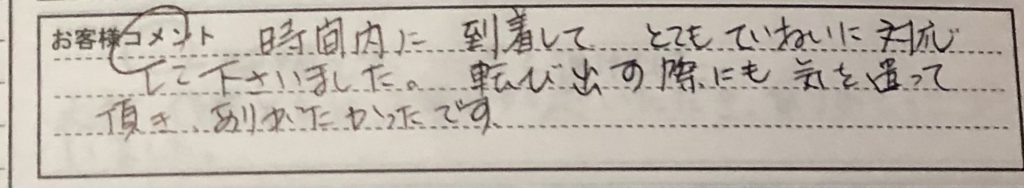 お客様コメント 時間内に 到着して とてもていねいに対応
して下さいました。 転び出す際にも 気を遣って
頂き、ありがたかったです